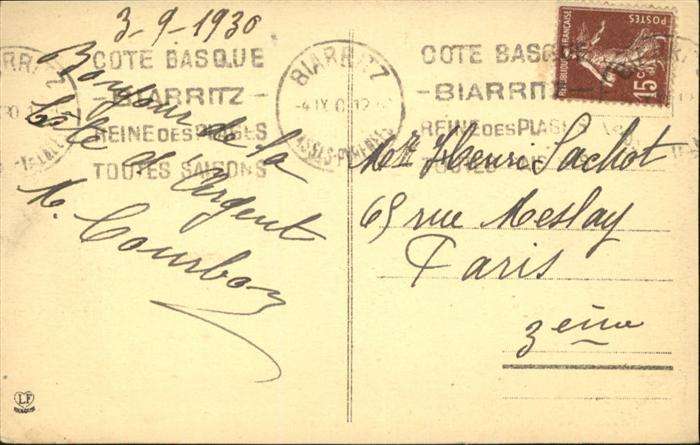 3-9-1930
Bonjour de la
Côte d'Argent
M. Courbon
COTE BASQUE
-BIARRITZ-
REINE DES PLAGES
TOUTES SAISONS
BIARRITZ
-4 IX 0
BASSES-PYRENEES
COTE BASQUE
-BIARRITZ-
REINE DES PLAGES
TOUTES SAISONS
REPUBLIQUE FRANÇAISE
POSTES
15c
Henri Sachot
69 rue Meslay
Paris
3eme
LF